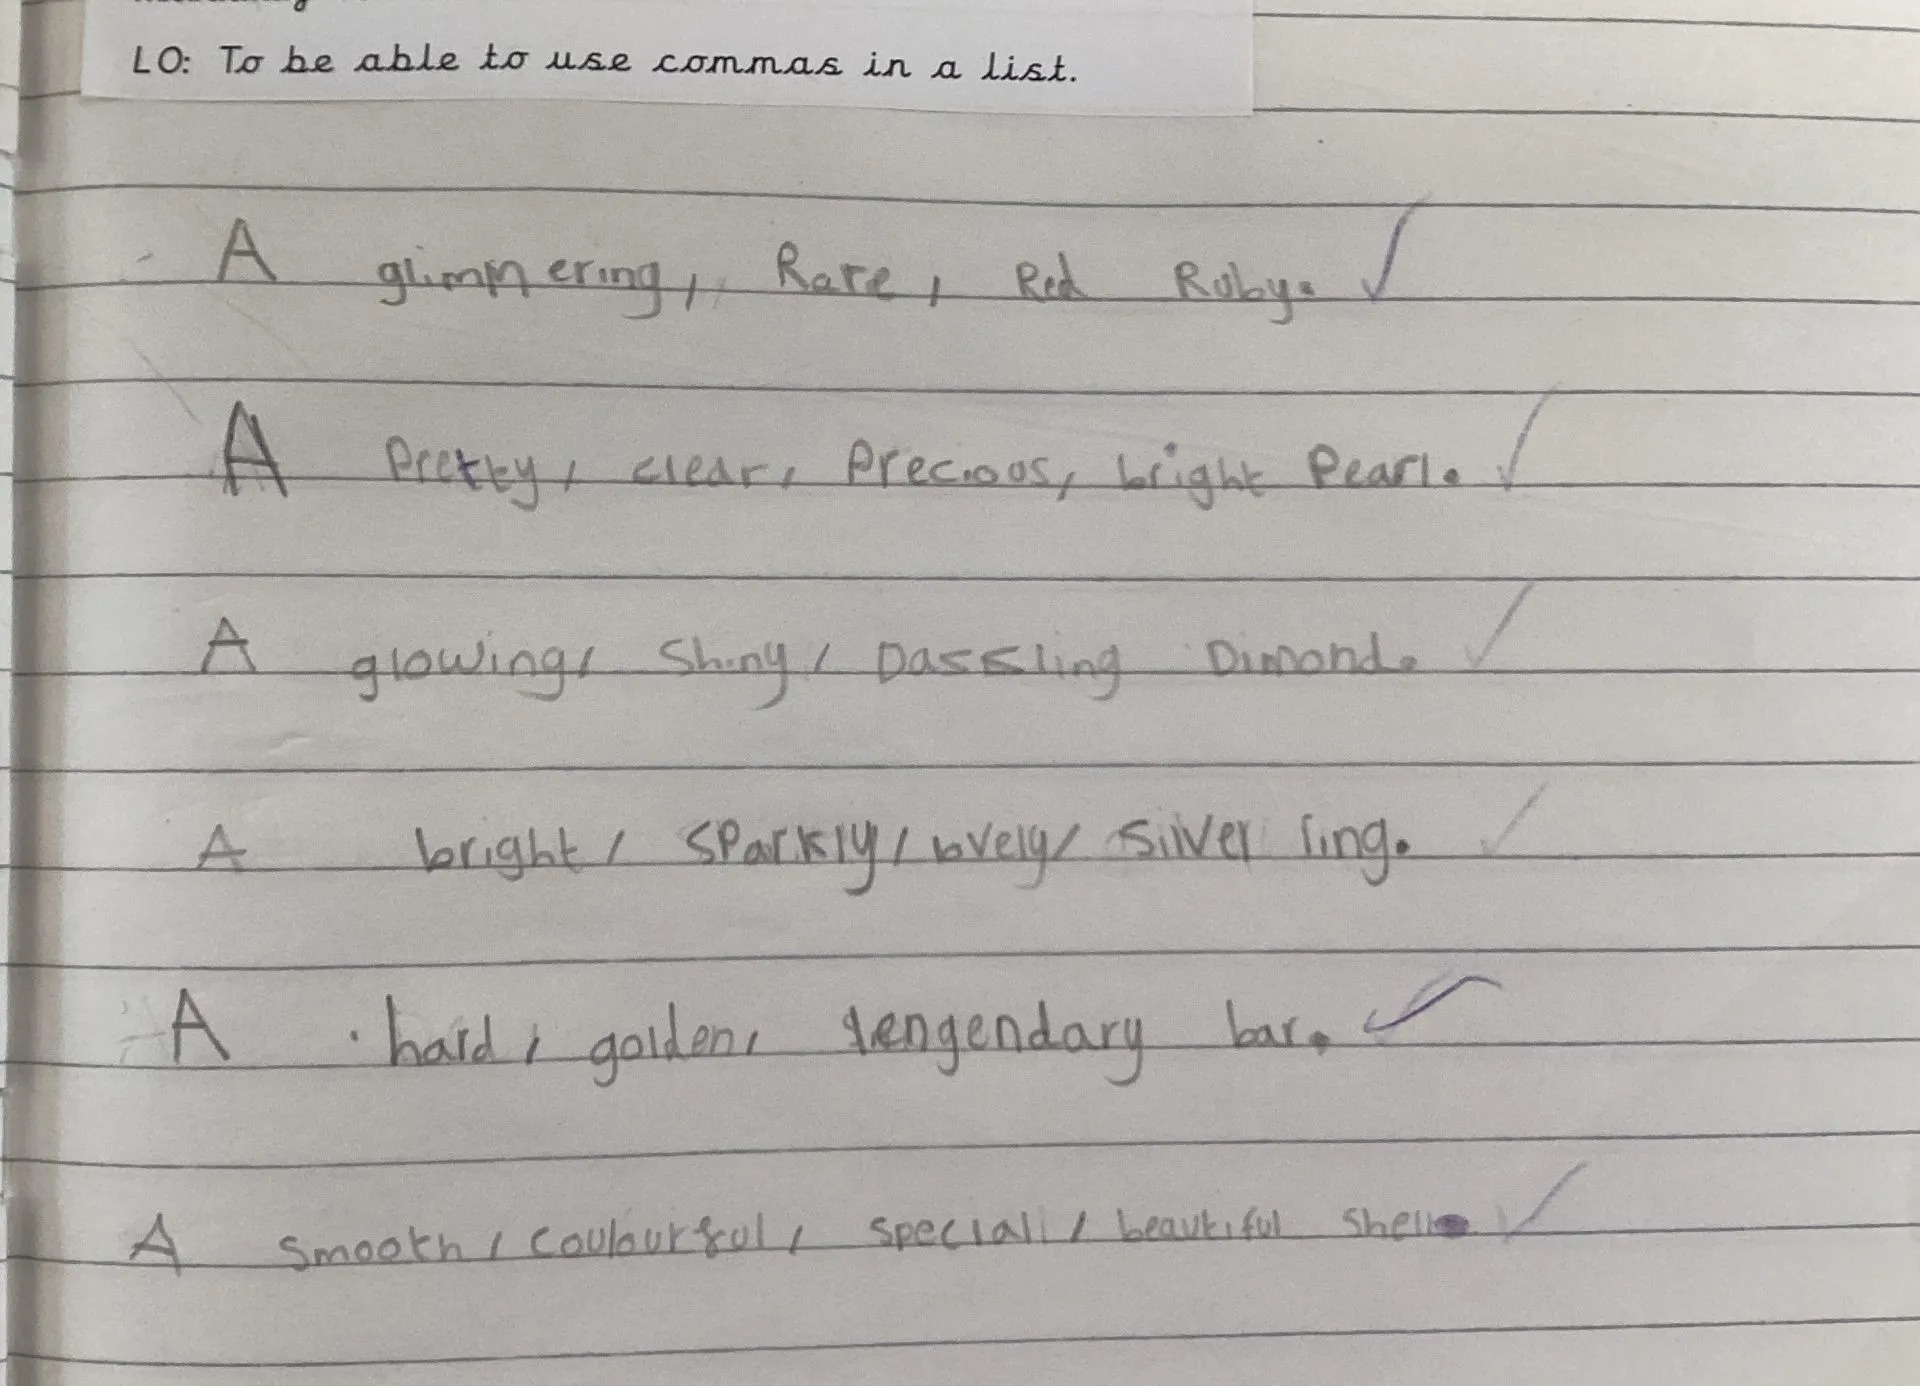 LO: To be able to use commas in a list.
A glimmering, Rare, Red Ruby.
A Pretty, clear, Precioos, bright Pearl.
A glowing, Shiny, Dassling Dimond.
A bright, sparkly, lovely, silver ring.
A hard, golden, lengendary bar.
A smooth, coulourful, speciall, beautiful shell.